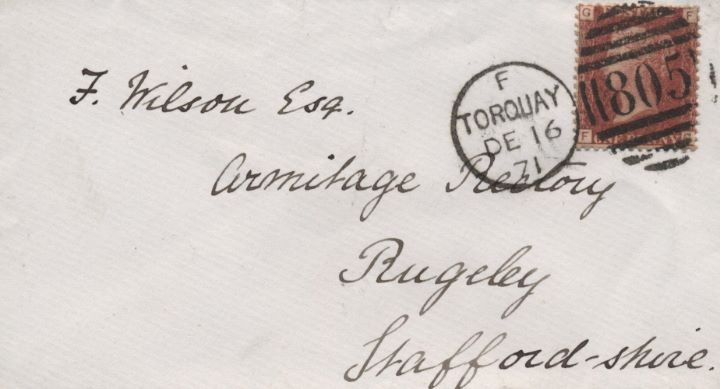 G F
F
TORQUAY
DE 16
71
805
F G
F. Wilson Esq.
Armitage Rectory
Rugeley
Stafford-shire.